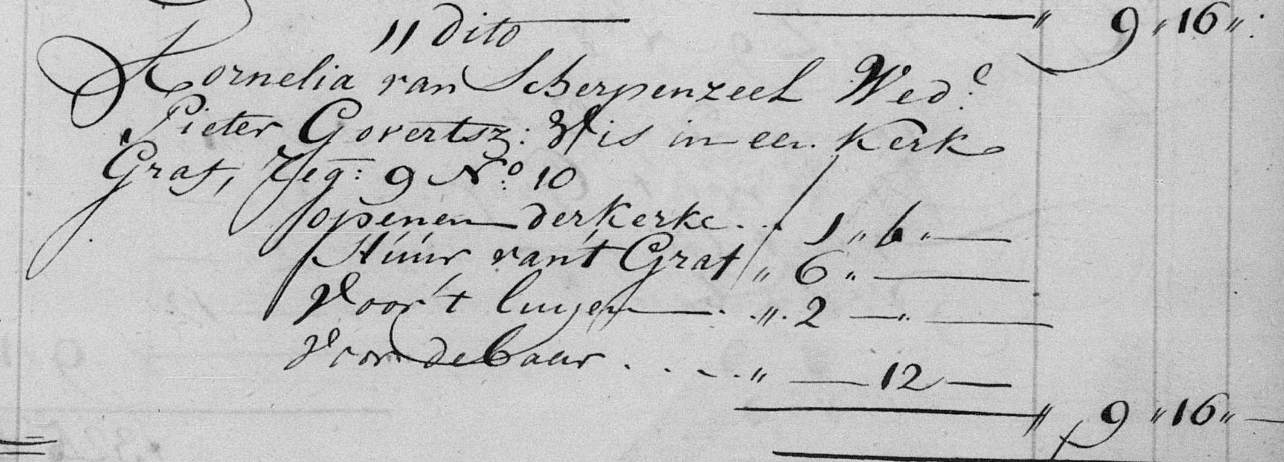 " 9 " 16 " :
11 dito
Kornelia van Scherpenzeel Wed.e
Pieter Govertsz: Vis in een Kerk
Graf, Reg: 9 No. 10
openen der kerke . . 1 " 6 " —
Huur van't Graf " 6 " —
Voor't luijen — . " 2 — " —
Voor de baar . . . . " — 12 —
" 9 " 16 " —